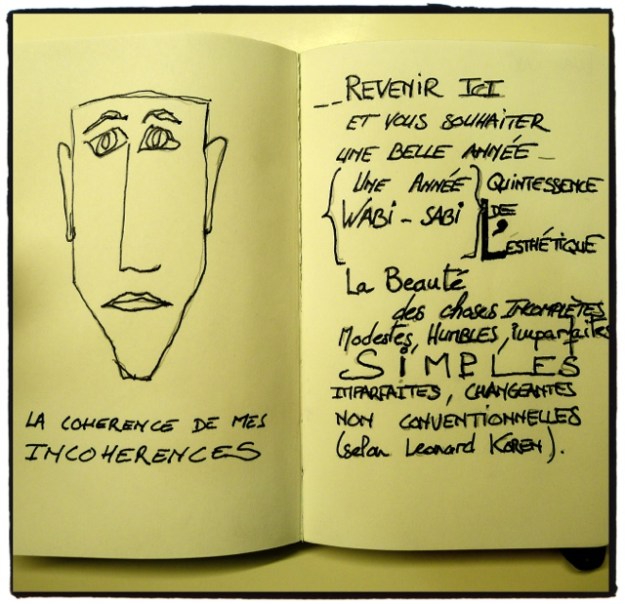 LA COHERENCE DE MES
INCOHERENCES
__ REVENIR ICI
ET VOUS SOUHAITER
UNE BELLE ANNÉE _
{ UNE ANNÉE } QUINTESSENCE
WABI - SABI DE
L'ESTHÉTIQUE
La Beauté
des choses INCOMPLÈTES
Modestes, HUMBLES, imparfaites
SIMPLES
IMPARFAITES, CHANGEANTES
NON CONVENTIONNELLES
(selon Leonard KOREN).